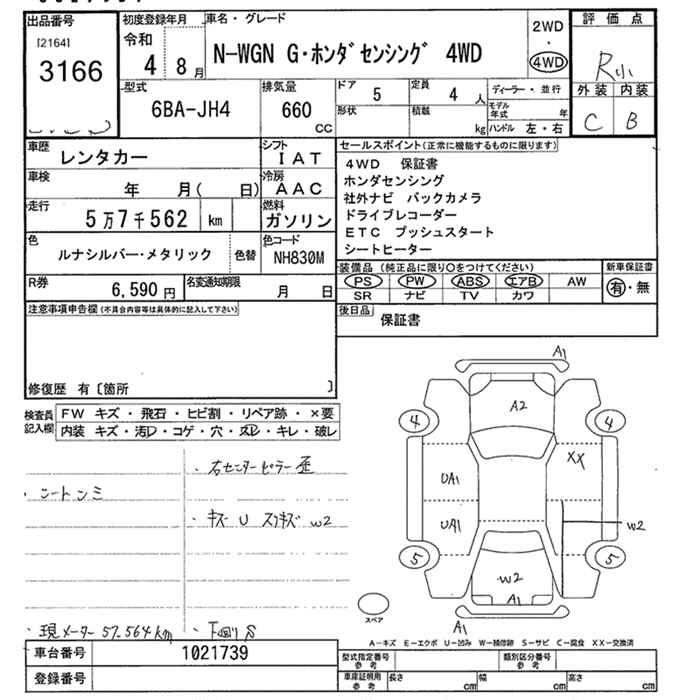 出品番号
[2164]
3166
初度登録年月
令和
4 8月
車名・グレード
N-WGN G・ホンダセンシング 4WD
2WD
・
4WD
評価点
R小
外装 内装
C B
型式
6BA-JH4
排気量
660
CC
ドア
5
定員
4 人
形状
積載
kg
ディーラー・並行
モデル年式 年
ハンドル 左・右
車歴
レンタカー
シフト
IAT
車検
年 月( 日)
冷房
AAC
走行
5万7千562 km
燃料
ガソリン
色
ルナシルバー・メタリック
色替
色コード
NH830M
R券
6,590 円
名変通知期限
月 日
セールスポイント(正常に機能するものに限ります)
4WD 保証書
ホンダセンシング
社外ナビ バックカメラ
ドライブレコーダー
ETC プッシュスタート
シートヒーター
装備品(純正品に限り○をつけてください)
PS PW ABS エアB AW
SR ナビ TV カワ
新車保証書
有・無
後日品
保証書
注意事項申告欄(不具合内容等は具体的に記入して下さい)
修復歴 有〔箇所 〕
検査員記入欄
FW キズ・飛石・ヒビ割・リペア跡・×要
内装 キズ・汚レ・コゲ・穴・スレ・キレ・破レ
・右センターピラー歪
・シートシミ
・キズ U スリキズ W2
・現メーター 57,564km
・下廻りS
A1
A2
4 4
UA1 XX
UA1
W2
5 5
W2
A1
A1
スペア
A-キズ E-エクボ U-凹み W-補修跡 S-サビ C-腐食 XX-交換済
車台番号
1021739
登録番号
型式指定番号
参考
類別区分番号
参考
車庫証明用
参考
長さ cm
幅 cm
高さ cm